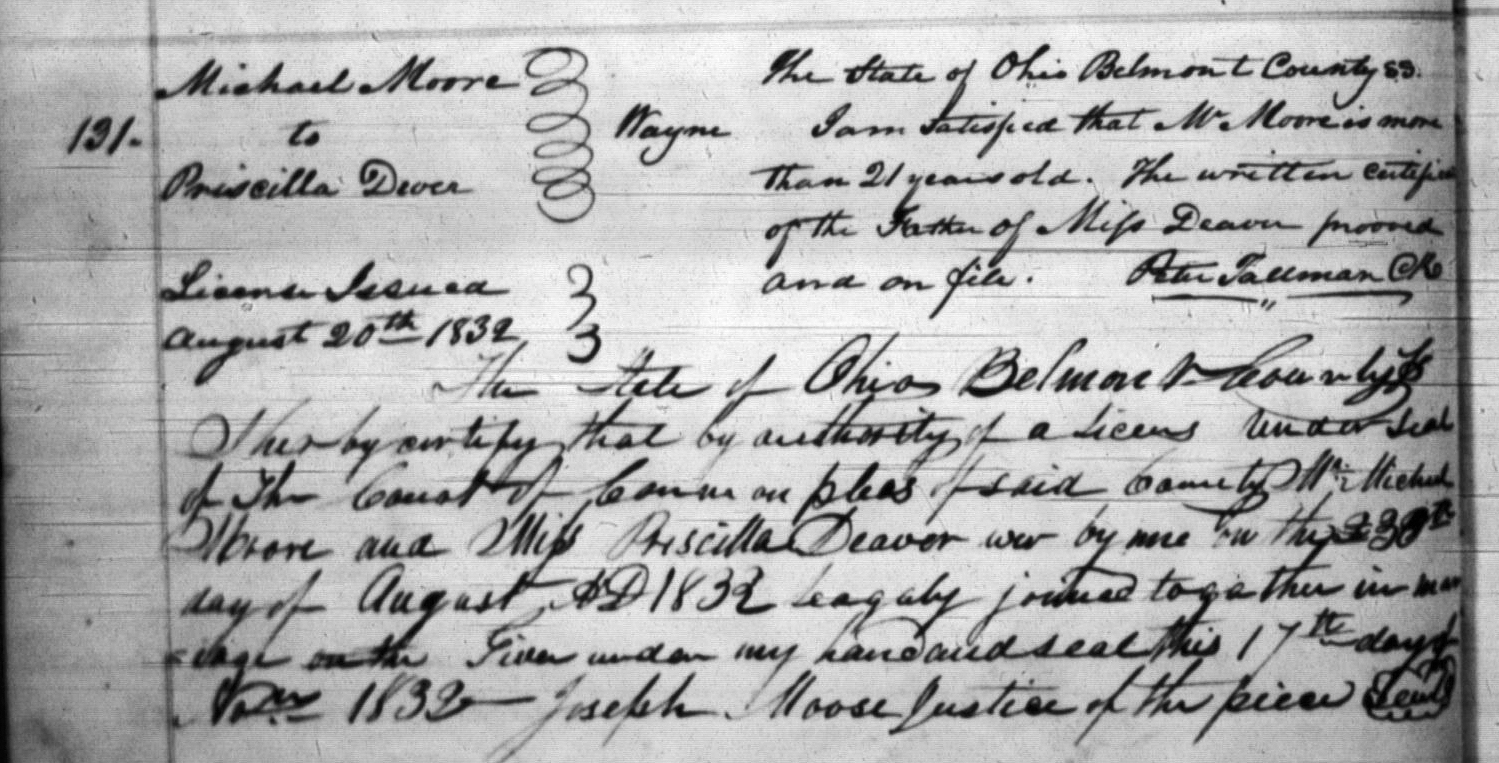 Michael Moore
131. to
Priscilla Dever
License Issued
August 20th 1832
Wayne
The State of Ohio Belmont County ss.
I am Satisfied that Mr Moore is more
than 21 years old. The written certific
of the Father of Miss Deaver prooved
and on file. Peter Tallman Clk
The State of Ohio Belmont County Ss
I herby certify that by authority of a Licens under Seal
of The Court of Common pleas of said County Mr Micheal
Moore and Miss Priscilla Deavor wer by me on the
day of August AD 1832 Leagaly joined togather in mar
-iage on the Given under my hand and seal this 17th day of
Novr 1832 Joseph Moose Justice of the piece Seal